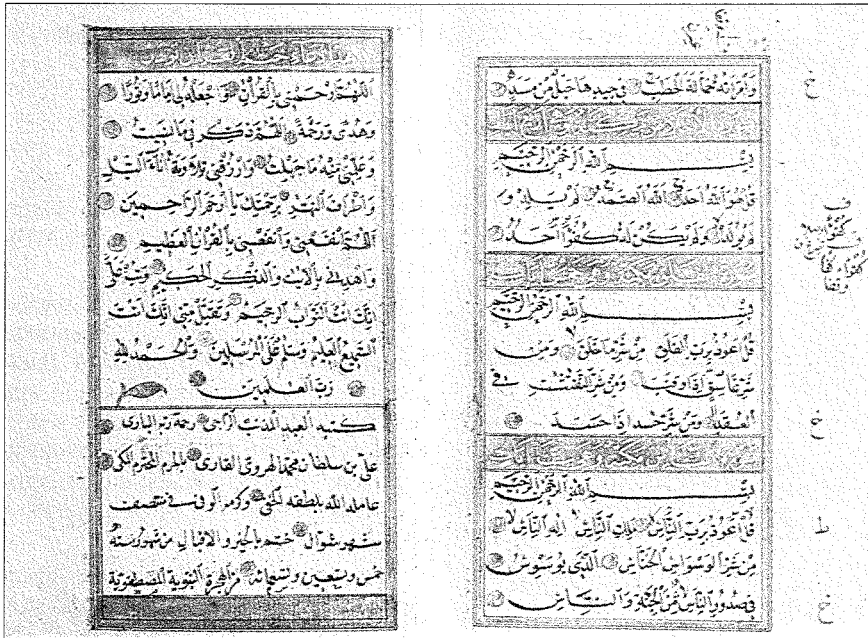 وَامْرَأَتُهُ حَمَّالَةَ الْحَطَبِ فِي جِيدِهَا حَبْلٌ مِنْ مَسَدٍ
خ
بِسْمِ اللهِ الرَّحْمٰنِ الرَّحِيمِ
قُلْ هُوَ اللهُ اَحَدٌ اَللهُ الصَّمَدُ لَمْ يَلِدْ وَ
لَمْ يُولَدْ وَلَمْ يَكُنْ لَهُ كُفُوًا اَحَدٌ
بِسْمِ اللهِ الرَّحْمٰنِ الرَّحِيمِ
قُلْ اَعُوذُ بِرَبِّ الْفَلَقِ مِنْ شَرِّ مَا خَلَقَ وَمِنْ
شَرِّ غَاسِقٍ اِذَا وَقَبَ وَمِنْ شَرِّ النَّفّٰثٰتِ فِي
الْعُقَدِ وَمِنْ شَرِّ حَاسِدٍ اِذَا حَسَدَ
بِسْمِ اللهِ الرَّحْمٰنِ الرَّحِيمِ
قُلْ اَعُوذُ بِرَبِّ النَّاسِ مَلِكِ النَّاسِ اِلٰهِ النَّاسِ
مِنْ شَرِّ الْوَسْوَاسِ الْخَنَّاسِ الَّذِي يُوَسْوِسُ
فِي صُدُورِ النَّاسِ مِنَ الْجِنَّةِ وَالنَّاسِ
اَللّٰهُمَّ ارْحَمْنِي بِالْقُرْاٰنِ وَاجْعَلْهُ لِي اِمَامًا وَنُورًا
وَهُدًى وَرَحْمَةً اَللّٰهُمَّ ذَكِّرْنِي مَا نَسِيتُ
وَعَلِّمْنِي مِنْهُ مَا جَهِلْتُ وَارْزُقْنِي تِلَاوَتَهُ اٰنَاءَ اللَّيْلِ
وَاَطْرَافَ النَّهَارِ بِرَحْمَتِكَ يَا اَرْحَمَ الرَّاحِمِينَ
اَللّٰهُمَّ انْفَعْنِي وَارْفَعْنِي بِالْقُرْاٰنِ الْعَظِيمِ
وَاهْدِنِي بِالْاٰيَاتِ وَالذِّكْرِ الْحَكِيمِ وَتُبْ عَلَيَّ
اِنَّكَ اَنْتَ التَّوَّابُ الرَّحِيمُ وَتَقَبَّلْ مِنِّي اِنَّكَ اَنْتَ
السَّمِيعُ الْعَلِيمُ وَسَلَامٌ عَلَى الْمُرْسَلِينَ وَالْحَمْدُ لِلّٰهِ
رَبِّ الْعٰلَمِينَ
كتبه العبد المذنب الراجي رحمة ربه الباري
علي بن سلطان محمد الهروي القاري بالحرم المحترم المكي
عامله الله بلطفه الخفي وكرمه الوفي في منتصف
شهر شوال ختم بالخير والاقبال من شهور سنة
خمس وتسعين وتسعمائة من الهجرة النبوية المصطفوية